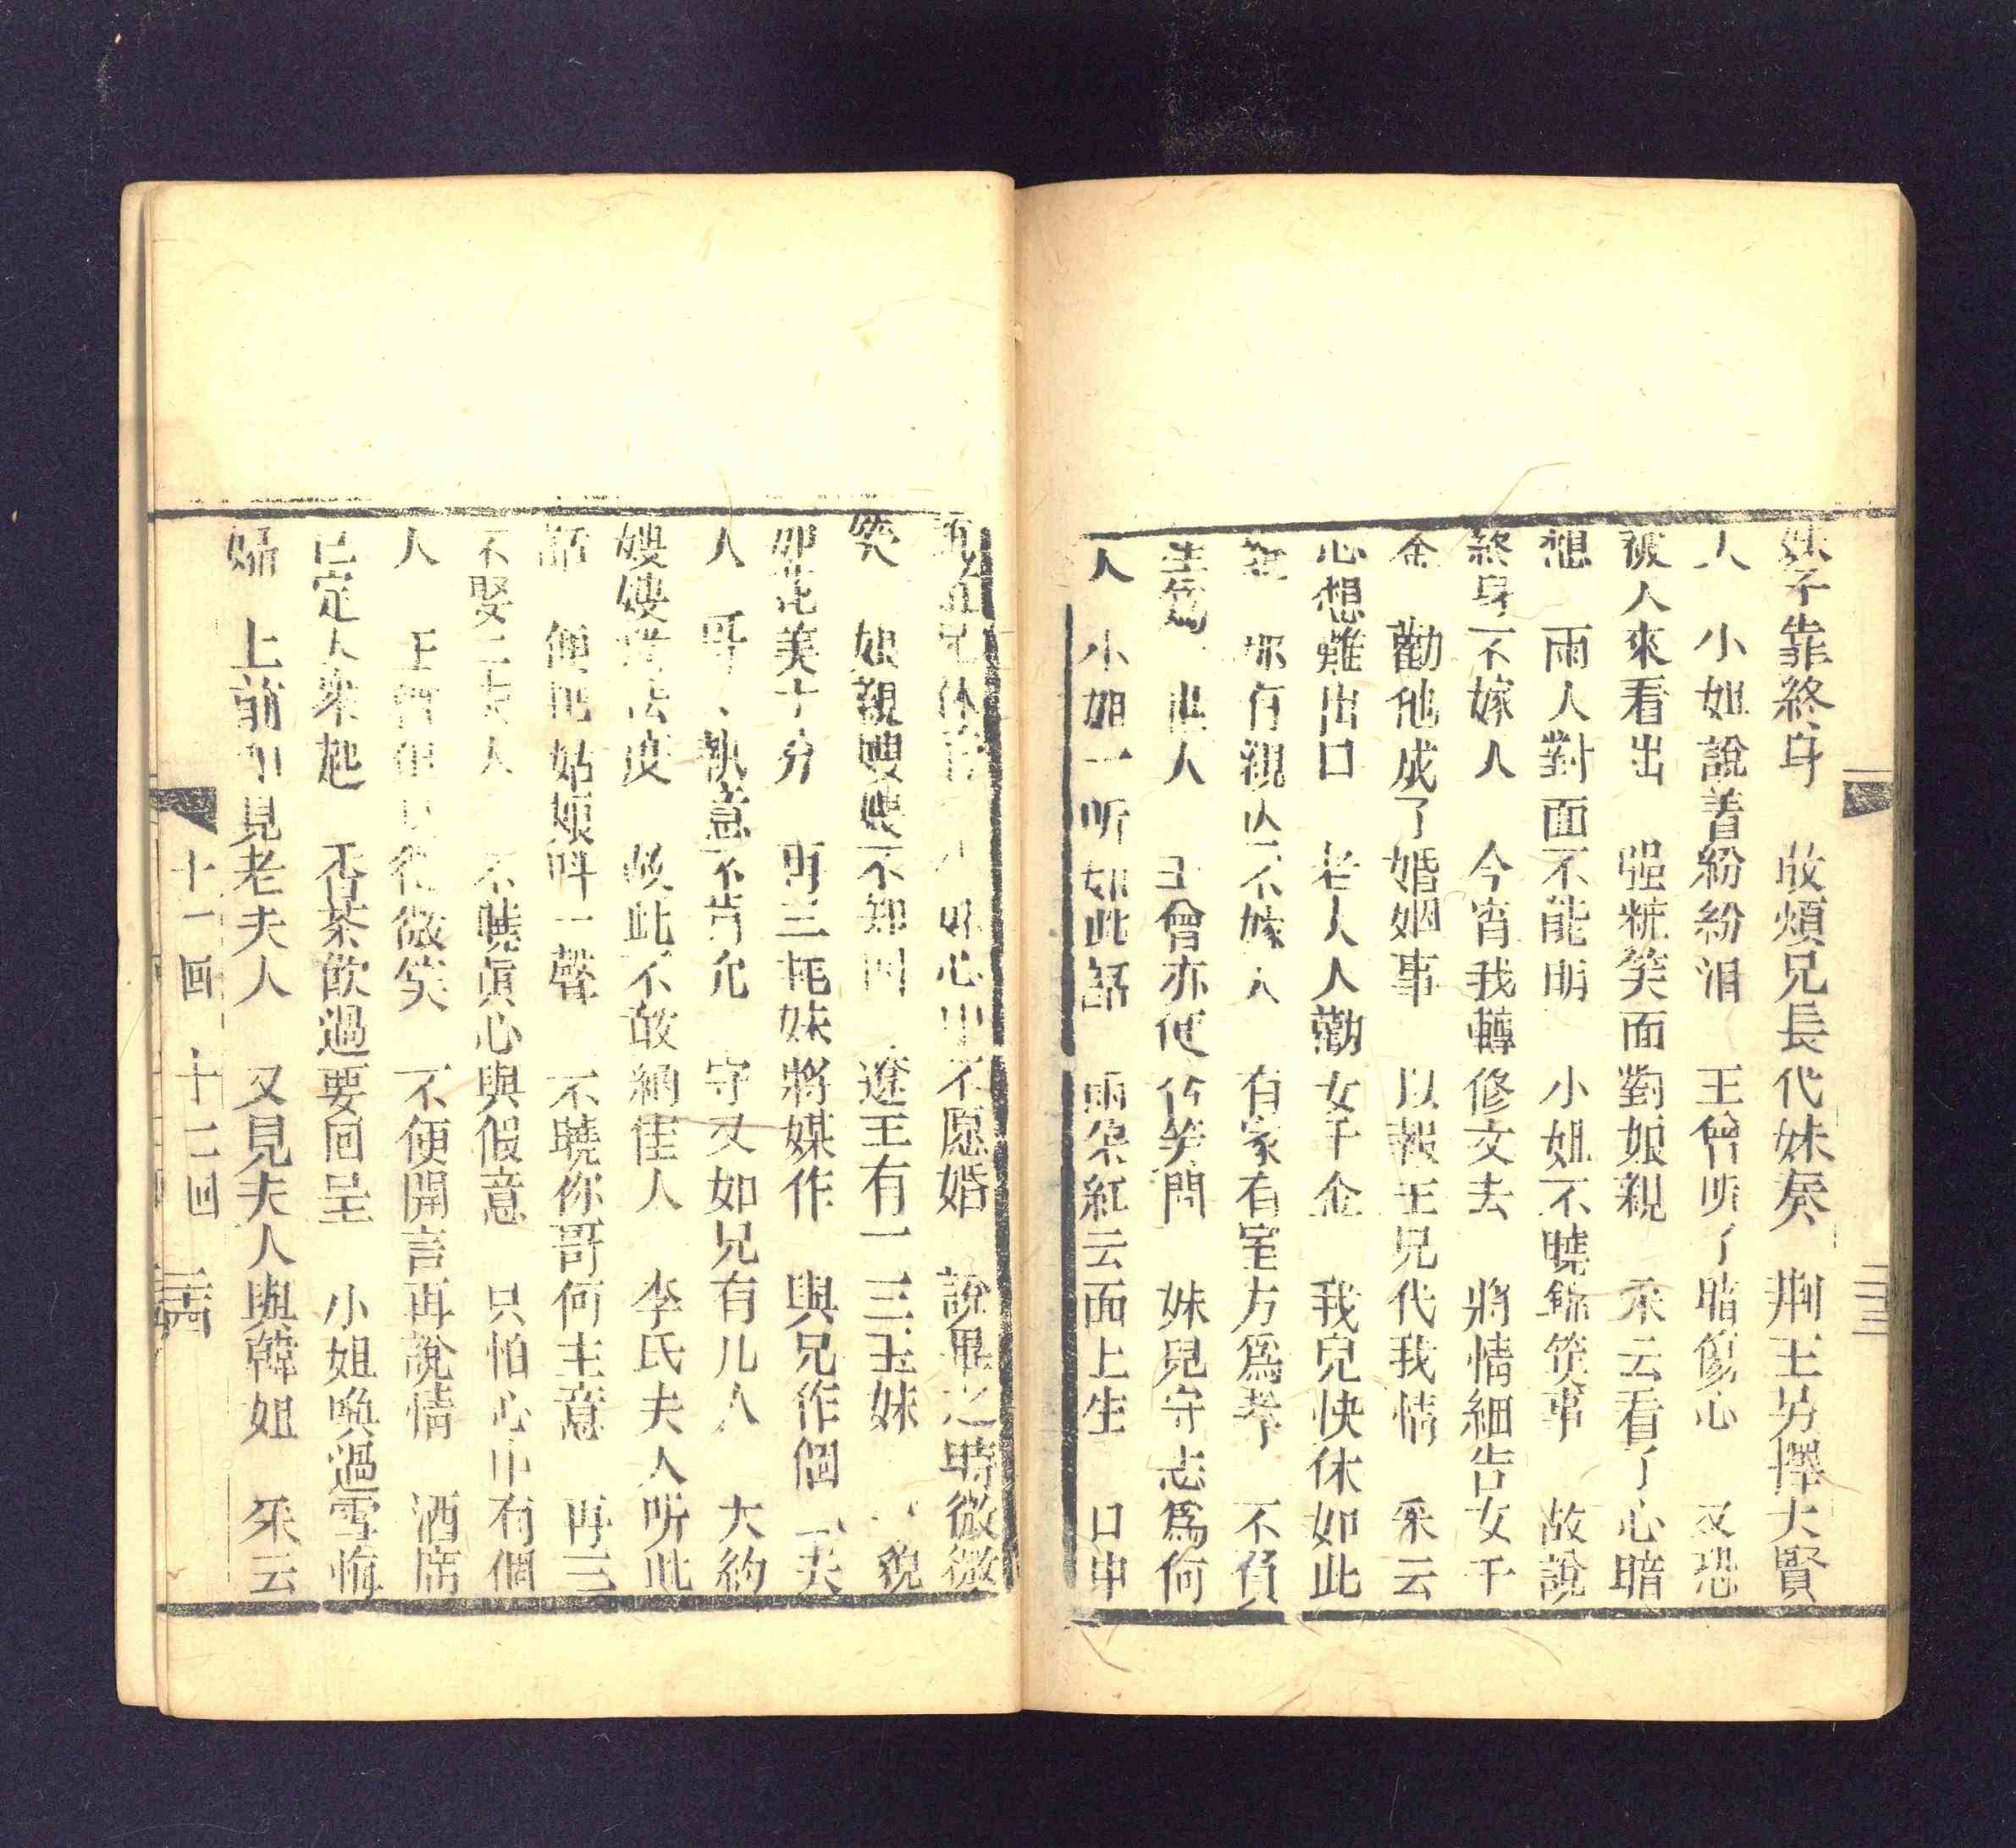 妹子靠終身　敢煩兄長代妹奏　荆王另擇大賢
人　小姐說着紛紛泪　王曾听了暗傷心　又恐
被人來看出　强粧笑面對娘親　采云看了心暗
想　兩人對面不能明　小姐不曉錦箋事　故說
終身不嫁人　今宵我轉修文去　將情細告女千
金　勸他成了婚姻事　以報王兄代我情　采云
心想難出口　老人人勸女千金　我兒快休如此
　你有親人不嫁人　有家有室方為孝　不負
生為　世人　王曾亦便佯笑問　妹兒守志為何
人　小姐一听如此話　兩朶紅云面上生　口中
兄休　心中不愿婚　說畢之時微微
笑　娘親嫂嫂不知因　遼王有一三王妹　貌
如花美十分　再三托妹將媒作　與兄作個二夫
人　哥哥執意不肯允　守义如兄有几人　大約
嫂嫂　法度　故此不敢納佳人　李氏夫人听此
話　便把姑娘呌一聲　不曉你哥何主意　再三
不娶二夫人　不曉眞心與假意　只怕心中有個
人　王曾　微笑　不便開言再說情　酒席
已定人來起　香茶飲過要回呈　小姐喚過雪梅
婦　上前叩見老夫人　又見夫人與韓姐　采云
十一回　十二回